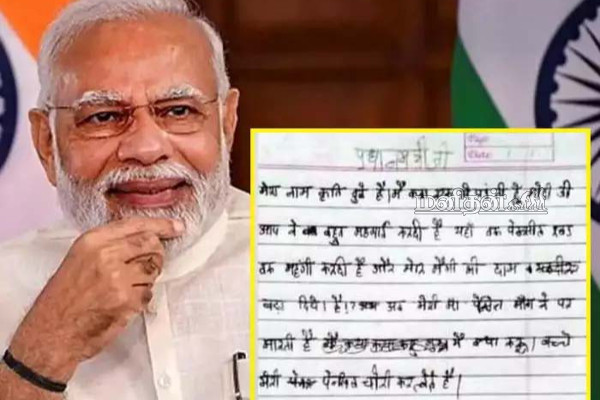 प्रधानमंत्री जी
Page:
Date:
மனிதன்.COM
मेरा नाम कृति दुबे है। मैं कक्षा में पढ़ती हूँ मोदी जी
आप ने बहुत महगाई करदी है यहाँ तक पेन्सील रबड़
तक महंगी करदी है और मेरि मैगी की दाम
बढ़ा दिये। है। अब मेरी मा पेंसिल मांगने पर
मारती है में क्या करू। बच्चे
मेरी पेन्सिल चोरी कर लेते है।